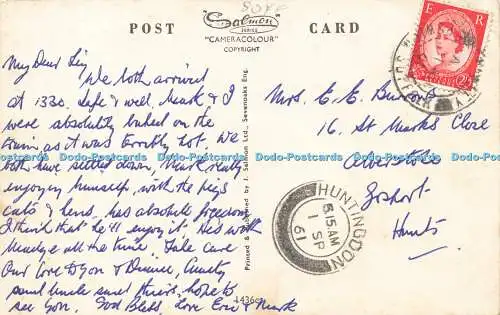 50FF
POST
Salmon
SERIES
"CAMERACOLOUR"
COPYRIGHT
CARD
My Dear
We both arrived
at 1330. Safe & well. Mark & I
were absolutely on the
train as it was terribly hot. We
both have settled down, Mark really
enjoying himself, with the pigs
cats & hens, has absolute freedom
I think that he'll enjoy it. He's with
all the time. Take care
Our Love to you &
and Uncle and theirs, hope to
see you. God Bless. Love & Mark
Printed & Published by J. Salmon Ltd., Sevenoaks Eng.
1436c
E R
Mrs. E. E.
16. St Marks Close
Alverstoke
Gosport
Hants
HUNTINGDON
5 15 AM
1 SP
61
Dodo-Postcards Dodo-Postcards Dodo-Postcards Dodo-Postcards Dodo-Postcards